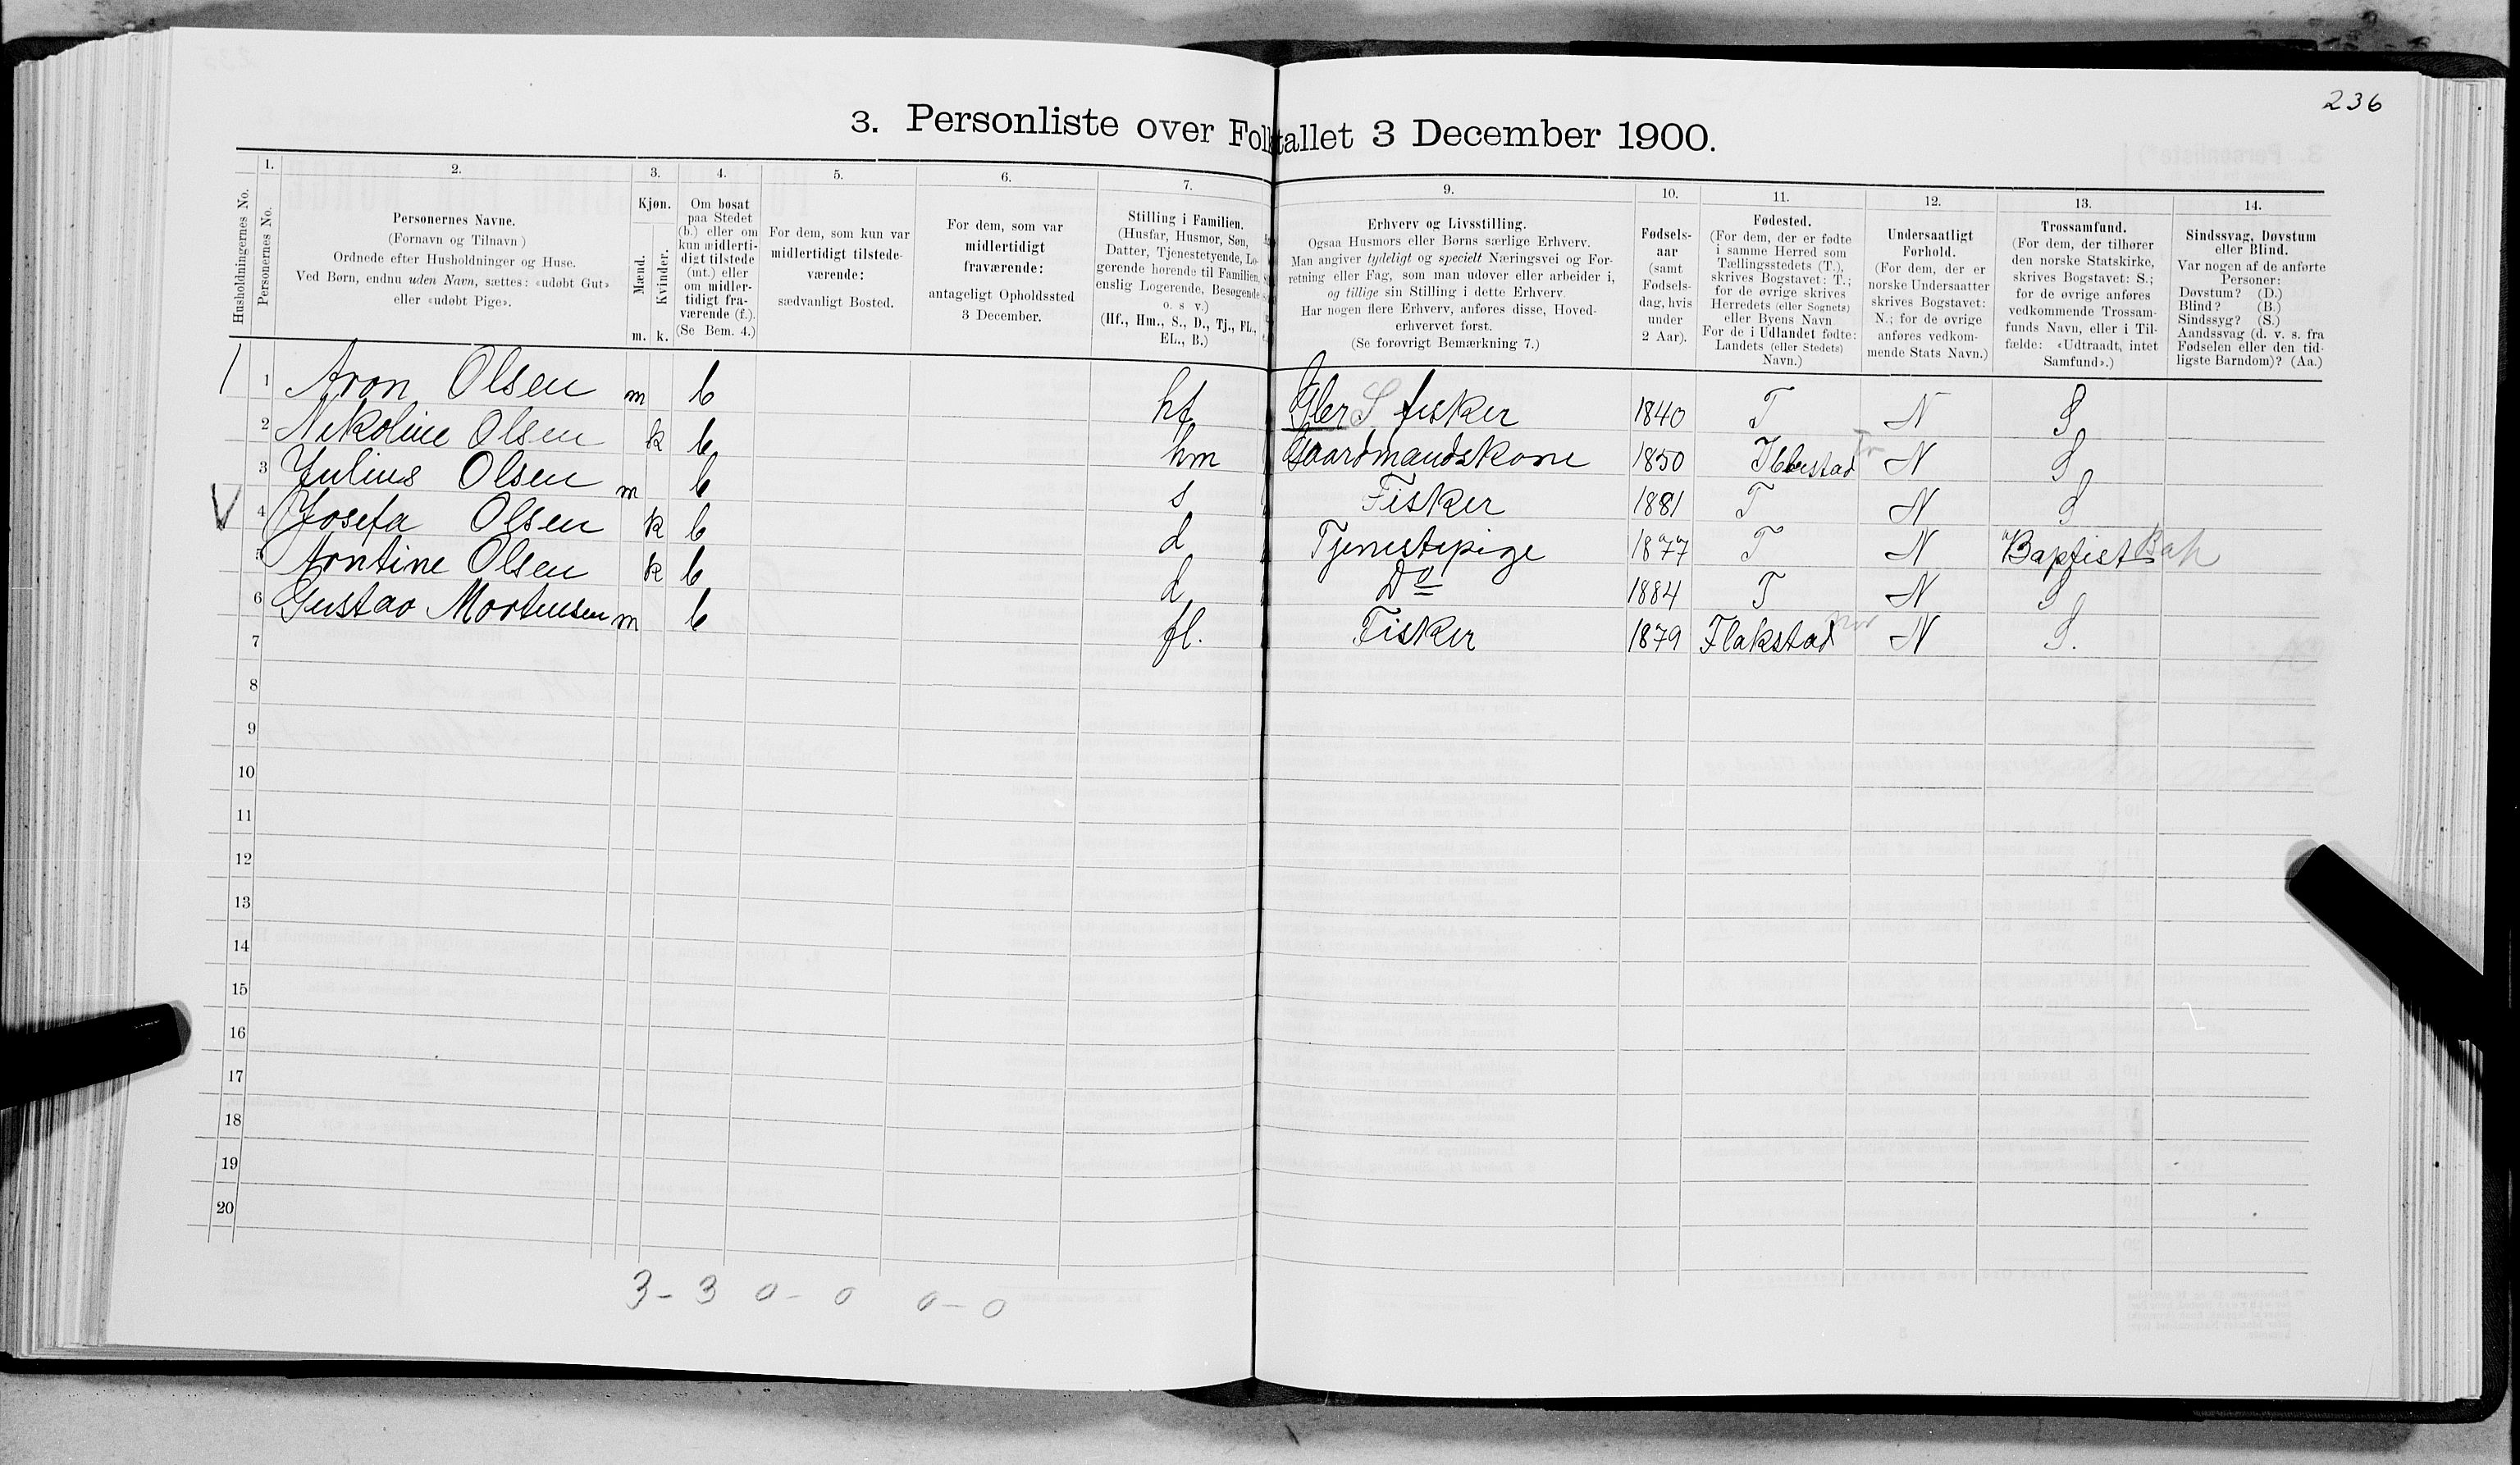 236
3. Personliste over Folketallet 3 December 1900.
Husholdningernes No.
1.
Personernes No.
2.
Personernes Navne.
(Fornavn og Tilnavn)
Ordnede efter Husholdninger og Huse.
Ved Børn, endnu uden Navn, sættes: «udøbt Gut»
eller «udøbt Pige».
3.
Kjøn.
Mænd.
Kvinder.
m. k.
4.
Om bosat
paa Stedet
(b.) eller om
kun midlerti-
digt tilstede
(mt.) eller
om midler-
tidigt fra-
værende (f.).
(Se Bem. 4.)
5.
For dem, som kun var
midlertidigt tilstede-
værende:
sædvanligt Bosted.
6.
For dem, som var
midlertidigt
fraværende:
antageligt Opholdssted
3 December.
7.
Stilling i Familien.
(Husfar, Husmor, Søn,
Datter, Tjenestetyende, Lo-
gerende hørende til Familien,
enslig Logerende, Besøgende
o. s v.)
(Hf., Hm., S., D., Tj., FL.,
EL., B.)
9.
Erhverv og Livsstilling.
Ogsaa Husmors eller Børns særlige Erhverv.
Man angiver tydeligt og specielt Næringsvei og For-
retning eller Fag, som man udøver eller arbeider i,
og tillige sin Stilling i dette Erhverv.
Har nogen flere Erhverv, anføres disse, Hoved-
erhvervet først.
(Se forøvrigt Bemærkning 7.)
10.
Fødsels-
aar
(samt
Fødsels-
dag, hvis
under
2 Aar).
11.
Fødested.
(For dem, der er fødte
i samme Herred som
Tællingsstedets (T.),
skrives Bogstavet: T.;
for de øvrige skrives
Herredets (eller Sognets)
eller Byens Navn
For de i Udlandet fødte:
Landets (eller Stedets)
Navn.)
12.
Undersaatligt
Forhold.
(For dem, der er
norske Undersaatter
skrives Bogstavet:
N.; for de øvrige
anføres vedkom-
mende Stats Navn.)
13.
Trossamfund.
(For dem, der tilhører
den norske Statskirke,
skrives Bogstavet: S.;
for de øvrige anføres
vedkommende Trossam-
funds Navn, eller i Til-
fælde: «Udtraadt, intet
Samfund».)
14.
Sindssvag, Døvstum
eller Blind.
Var nogen af de anførte
Personer:
Døvstum? (D.)
Blind? (B.)
Sindssyg? (S.)
Aandssvag (d. v. s. fra
Fødselen eller den tid-
ligste Barndom)? (Aa.)
1 1 Aron Olsen m b hf Gbr S fisker 1840 T N S
2 Nikoline Olsen k b hm Gaardmandskone 1850 Ibbestad Tr N S
3 Julius Olsen m b s Fisker 1881 T N S
V 4 Josefa Olsen k b d Tjenestepige 1877 T N Baptist Bap
5 Arntine Olsen k b d Do 1884 T N S
6 Gustav Mortensen m b fl. Fisker 1879 Flakstad Nor N S.
7
8
9
10
11
12
13
14
15
16
17
18
19
20
3 - 3 0 - 0 0 - 0